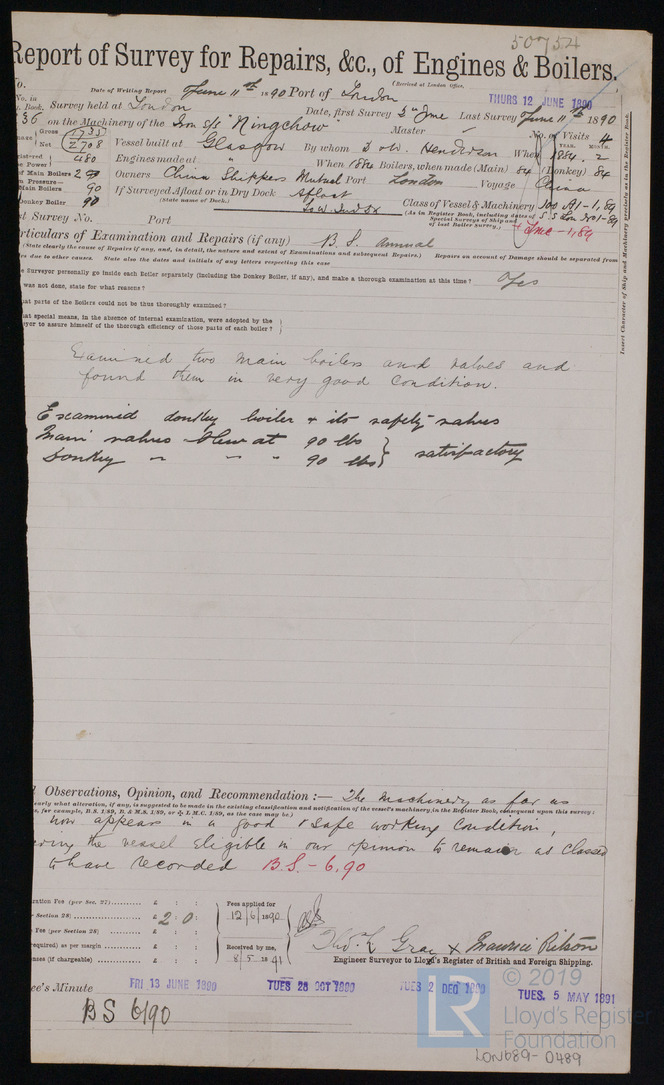 50754
Report of Survey for Repairs, &c., of Engines & Boilers.
(Received at London Office,
THURS 12 JUNE 1890
Date of Writing Report June 11th 1890 Port of London
No. in
Book. Survey held at London Date, first Survey 3rd June Last Survey June 11th 1890
36 on the Machinery of the Iron s/s "Ningchow" Master No. of Visits 4
Gross 1735
Net 2708 Vessel built at Glasgow By whom D & W. Henderson When YEAR. 1884 MONTH. 2
480 Engines made at " When 1884 Boilers, when made (Main) 84 (Donkey) 84
of Main Boilers 2 Owners China Shippers Mutual Port London Voyage China
Main Boilers 90 If Surveyed Afloat or in Dry Dock Afloat
(State name of Dock.)
Donkey Boiler 90 Class of Vessel & Machinery 100 A1 - 1,89
(As in Register Book, including dates of Special Surveys of Ship and of last Boiler survey.)
LMC - 1,89
Survey No. Port
Particulars of Examination and Repairs (if any) B.S. annual
(State clearly the cause of Repairs if any, and, in detail, the nature and extent of Examinations and subsequent Repairs.) Repairs on account of Damage should be separated from
due to other causes. State also the dates and initials of any letters respecting this case
Surveyor personally go inside each Boiler separately (including the Donkey Boiler, if any), and make a thorough examination at this time? Yes
was not done, state for what reasons?
parts of the Boilers could not be thus thoroughly examined?
special means, in the absence of internal examination, were adopted by the
to assure himself of the thorough efficiency of those parts of each boiler?
Insert Character of Ship and Machinery precisely as in the Register Book.
Examined two main boilers and valves and
found them in very good condition.
Examined donkey boiler & its safety valves
Main valves blew at 90 lbs
Donkey " " " 90 lbs } satisfactory
Observations, Opinion, and Recommendation :— The Machinery as far as
clearly what alteration, if any, is suggested to be made in the existing classification and notification of the vessel's machinery in the Register Book, consequent upon this survey:
for example, B.S. 1/89, B. & M.S. 1/89, or L.M.C. 1/89, as the case may be.)
now appears in a good & safe working condition,
the vessel eligible in our opinion to remain as classed
& have recorded B.S. - 6.90
Fee (per Sec. 27) £ : :
Section 28) £ 2 : 0 :
Fee (per Section 28) £ : :
required) as per margin £ : :
(if chargeable) £ : :
Fees applied for
12/6/1890
Received by me,
8/5 1891
Thos. L Gray & Maurice Ritson
Engineer Surveyor to Lloyd's Register of British and Foreign Shipping.
Minute FRI 13 JUNE 1890 TUES 28 OCT 1890 TUES 2 DEC 1890 TUES. 5 MAY 1891
BS 6/90
LR
© 2019
Lloyd's Register
Foundation
LON689-0489